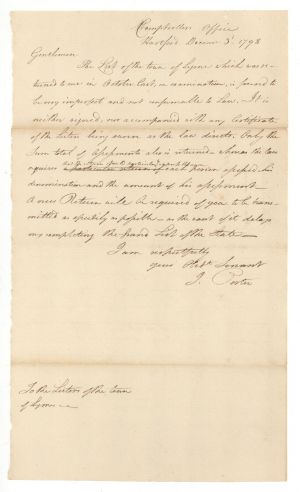 Comptrollers Office
Hartford Decemr 3d 1798
Gentlemen
The List of the town of Lyme which was re-
turned to me in October last, on examination, is found to
be very imperfect and not conformable to Law. It is
neither signed, nor accompanied with any Certificate
of the Listers being sworn as the law directs. Only the
sum total of Assessments also is returned - whereas the law
requires
a particular return of each person assessed his
denomination and the amount of his assessment
A new Return will be required of you to be trans-
mitted as speedily as possible - as the want of it delays
my completing the Grand List of the State -
I am respectfully
your Obdt Servant
J. Porter
To the Listers of the town
of Lyme